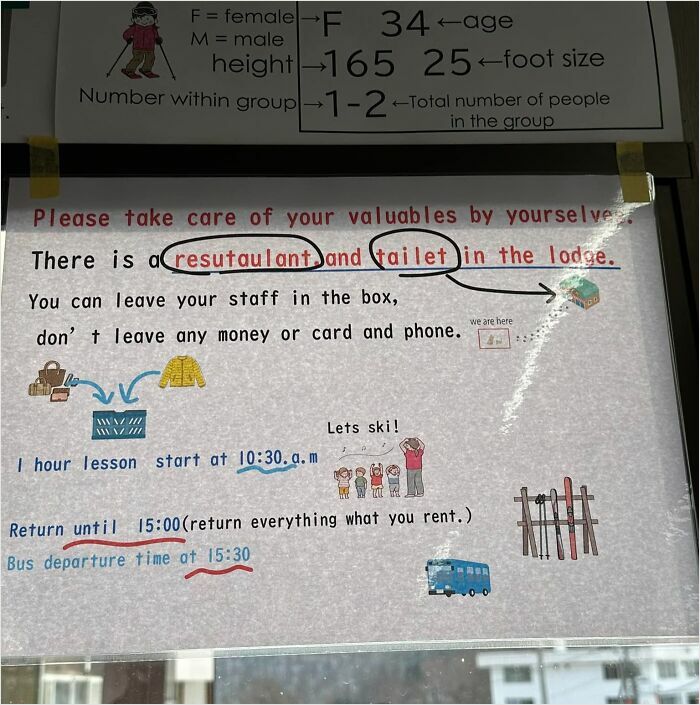 F = female → F 34 ← age
M = male
height → 165 25 ← foot size
Number within group → 1-2 ← Total number of people
in the group
Please take care of your valuables by yourselves.
There is a resutaulant and tailet in the lodge.
You can leave your staff in the box,
don't leave any money or card and phone.
we are here
Lets ski!
1 hour lesson start at 10:30.a.m
Return until 15:00(return everything what you rent.)
Bus departure time at 15:30